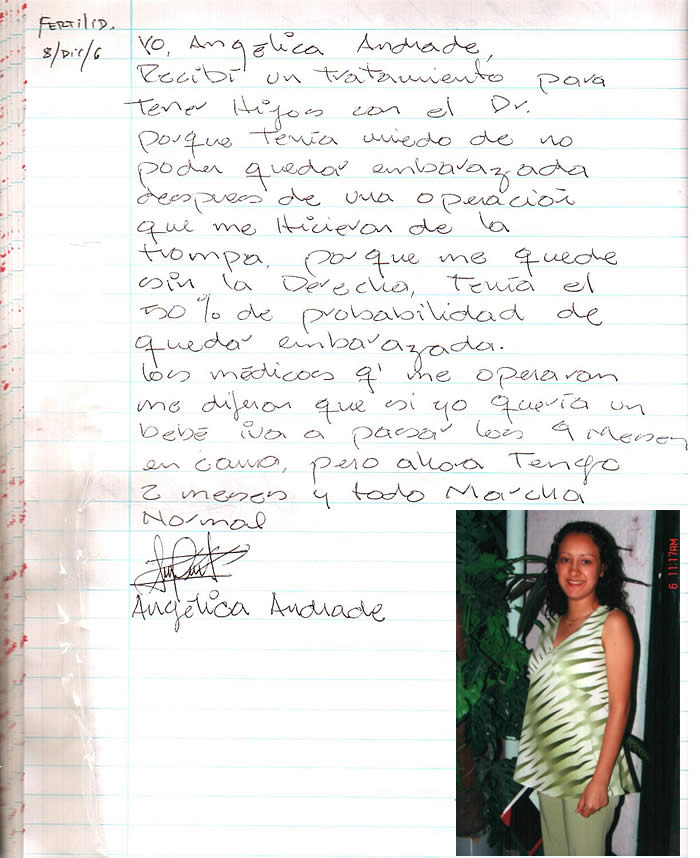 FERTILID.
8/Dic/6
Yo, Angélica Andrade,
Recibí un tratamiento para
tener Hijos con el Dr.
porque tenía miedo de no
poder quedar embarazada
despues de una operación
que me Hicieron de la
trompa, porque me quede
sin la Derecha, Tenía el
50% de probabilidad de
quedar embarazada.
los médicos q' me operaron
me dijeron que si yo quería un
bebé iva a pasar los 9 Meses
en cama, pero ahora Tengo
2 meses y todo Marcha
Normal
Angélica Andrade
6 11:17AM